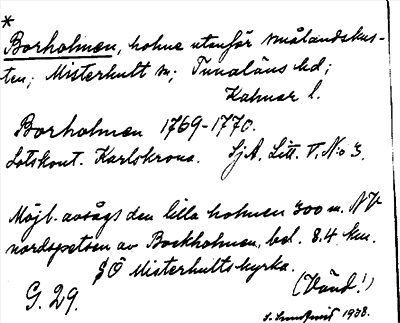 *
Borholmen, holme utanför smålandskus-
ten; Misterhult sn; Tunaläns hd;
Kalmar l.
Borholmen 1769-1770.
Lotskont. Karlskrona. SjA. Litt. V. N:o 3.
Möjl. avsågs den lilla holmen 300 m. NV
nordspetsen av Bockholmen, bel. 8.4 km.
SÖ Misterhults kyrka.
(Vänd!)
G. 29.
1938.